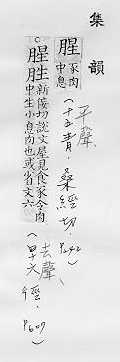 集韻
腥 豕肉
中息
平聲
(十五青．桑經切．P242)
C.
腥胜 新佞切說文星見食豕令肉
中生小息肉也或省文六
去聲、
六徑．P609)